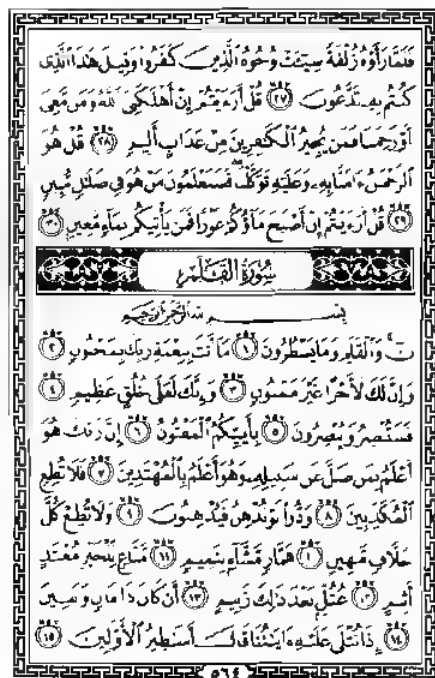 فَلَمَّا رَأَوْهُ زُلْفَةً سِيٓـَٔتْ وُجُوهُ ٱلَّذِينَ كَفَرُوا۟ وَقِيلَ هَٰذَا ٱلَّذِى
كُنتُم بِهِۦ تَدَّعُونَ ٢٧ قُلْ أَرَءَيْتُمْ إِنْ أَهْلَكَنِىَ ٱللَّهُ وَمَن مَّعِىَ
أَوْ رَحِمَنَا فَمَن يُجِيرُ ٱلْكَٰفِرِينَ مِنْ عَذَابٍ أَلِيمٍ ٢٨ قُلْ هُوَ
ٱلرَّحْمَٰنُ ءَامَنَّا بِهِۦ وَعَلَيْهِ تَوَكَّلْنَا ۖ فَسَتَعْلَمُونَ مَنْ هُوَ فِى ضَلَٰلٍ مُّبِينٍ
٢٩ قُلْ أَرَءَيْتُمْ إِنْ أَصْبَحَ مَآؤُكُمْ غَوْرًا فَمَن يَأْتِيكُم بِمَآءٍ مَّعِينٍۭ ٣٠
سُورَةُ القَلَمِ
بِسْمِ ٱللَّهِ ٱلرَّحْمَٰنِ ٱلرَّحِيمِ
نٓ ۚ وَٱلْقَلَمِ وَمَا يَسْطُرُونَ ١ مَآ أَنتَ بِنِعْمَةِ رَبِّكَ بِمَجْنُونٍ ٢
وَإِنَّ لَكَ لَأَجْرًا غَيْرَ مَمْنُونٍ ٣ وَإِنَّكَ لَعَلَىٰ خُلُقٍ عَظِيمٍ ٤
فَسَتُبْصِرُ وَيُبْصِرُونَ ٥ بِأَييِّكُمُ ٱلْمَفْتُونُ ٦ إِنَّ رَبَّكَ هُوَ
أَعْلَمُ بِمَن ضَلَّ عَن سَبِيلِهِۦ وَهُوَ أَعْلَمُ بِٱلْمُهْتَدِينَ ٧ فَلَا تُطِعِ
ٱلْمُكَذِّبِينَ ٨ وَدُّوا۟ لَوْ تُدْهِنُ فَيُدْهِنُونَ ٩ وَلَا تُطِعْ كُلَّ
حَلَّافٍ مَّهِينٍ ١٠ هَمَّازٍ مَّشَّآءٍۭ بِنَمِيمٍ ١١ مَّنَّاعٍ لِّلْخَيْرِ مُعْتَدٍ
أَثِيمٍ ١٢ عُتُلٍّۭ بَعْدَ ذَٰلِكَ زَنِيمٍ ١٣ أَن كَانَ ذَا مَالٍ وَبَنِينَ
١٤ إِذَا تُتْلَىٰ عَلَيْهِ ءَايَٰتُنَا قَالَ أَسَٰطِيرُ ٱلْأَوَّلِينَ ١٥
٥٦٤